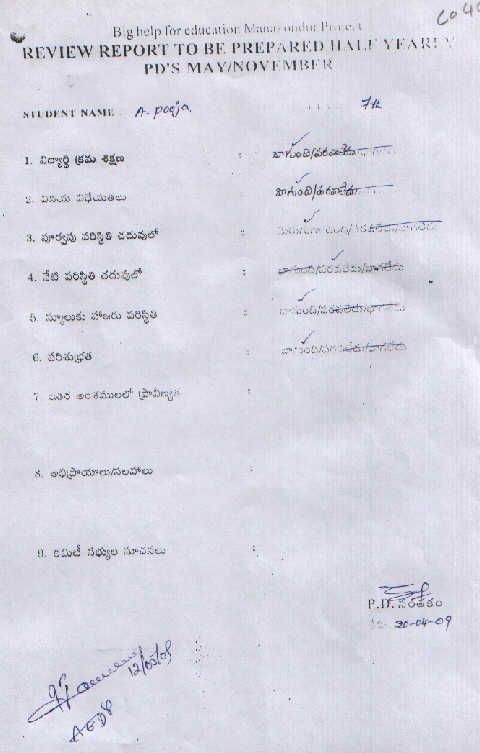 Big help for education Manakondur Project
REVIEW REPORT TO BE PREPARED HALF YEARLY
PD'S MAY/NOVEMBER
STUDENT NAME : A. pooja 7th
1. విద్యార్థి క్రమ శిక్షణ : బాగుంది/పరవాలేదు
2. వినయ విధేయతలు : బాగుంది/పరవాలేదు
3. పూర్వపు పరిస్థితి చదువులో :
4. నేటి పరిస్థితి చదువులో : బాగుంది/పరవాలేదు/బాగలేదు
5. స్కూలుకు హాజరు పరిస్థితి : బాగుంది/పరవాలేదు/బాగలేదు
6. పరిశుభ్రత : బాగుంది/పరవాలేదు/బాగలేదు
7. ఇతర అంశములలో ప్రావీణ్యత :
8. అభిప్రాయాలు/సలహాలు :
9. కమిటీ సభ్యుల సూచనలు :
P.D. సంతకం
30-04-09
12/05/09